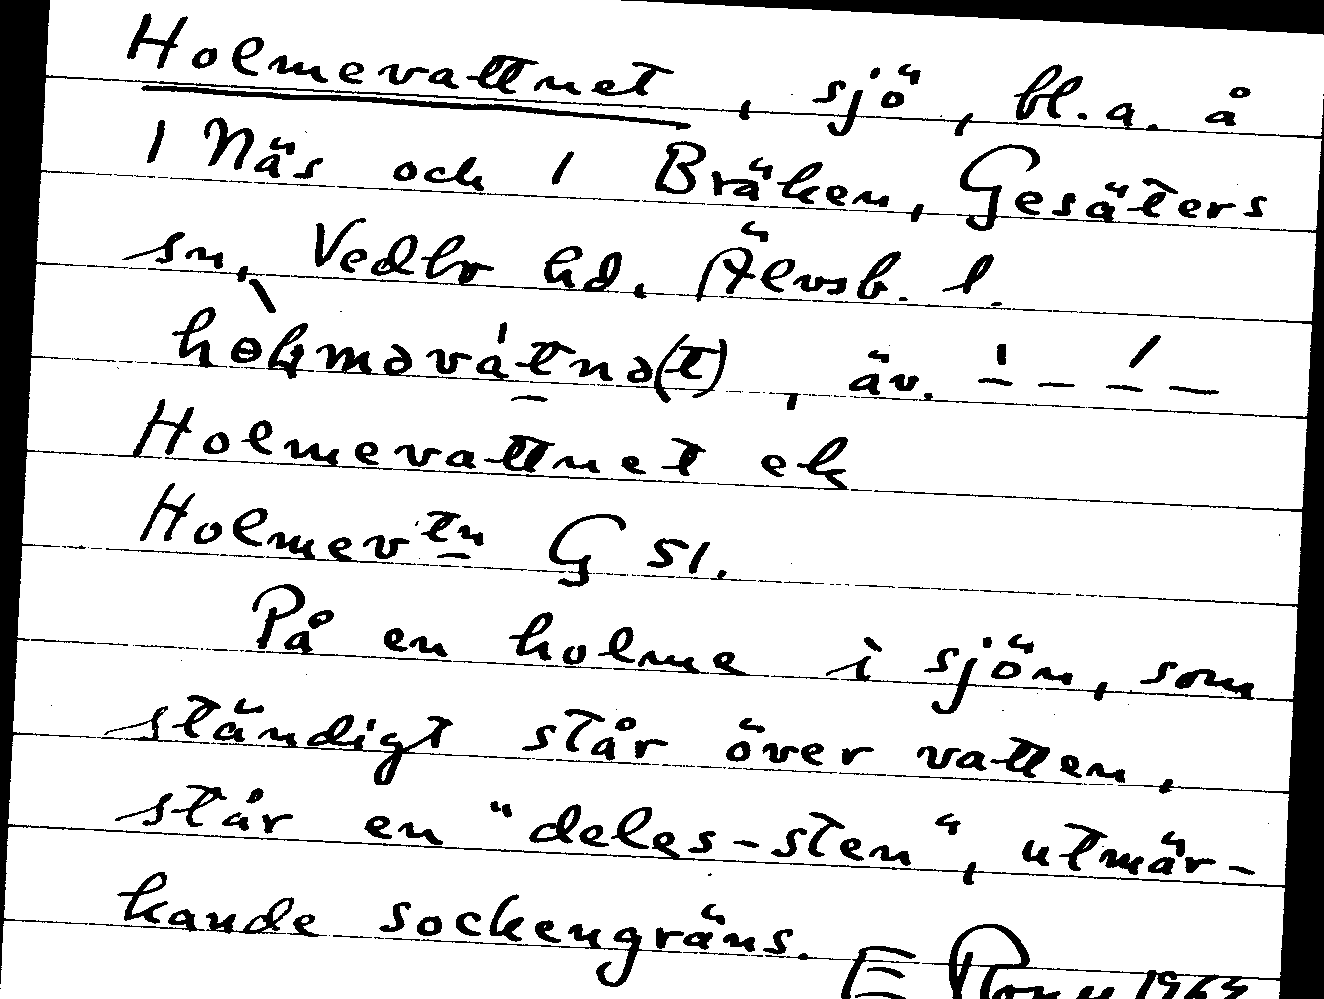 Holmevattnet, sjö, bl. a. å
1 Näs och 1 Bräken, Gesäters
sn, Vedbo hd. Älvsb. l.
Holmevattnet ek
Holmev tn G 51.
På en holme i sjön, som
ständigt står över vatten,
står en "deles-sten", utmär-
kande sockengräns.
1964